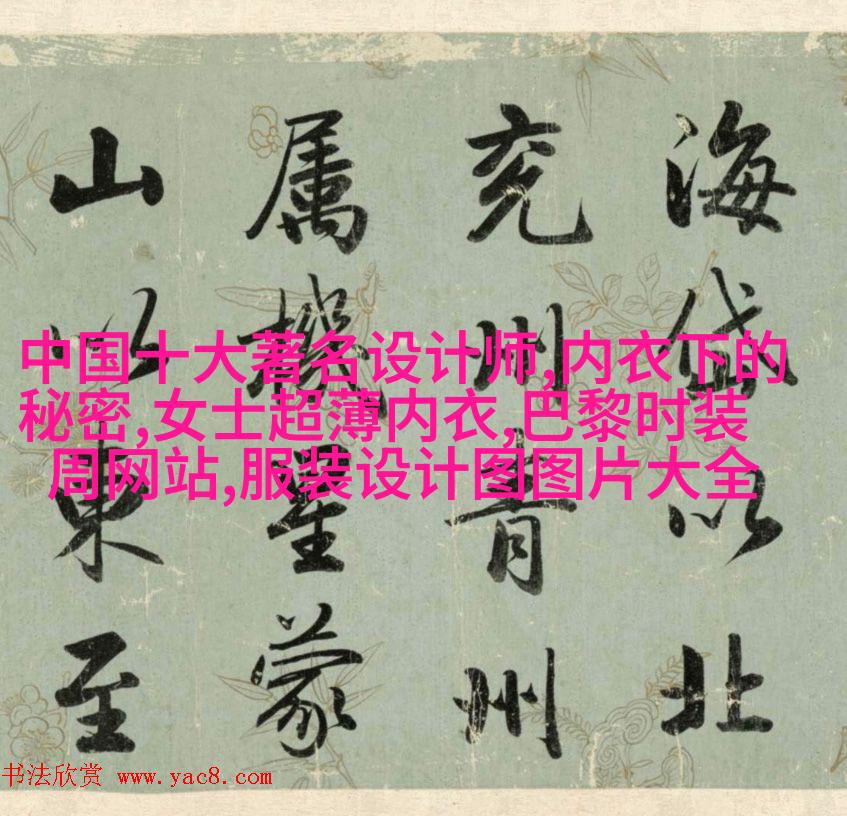 海岱以北
兖州青州
属機星蒙
山以東至
中国十大著名设计师,内衣下的
秘密,女士超薄内衣,巴黎时装
周网站,服装设计图图片大全
书法欣赏 www.yac8.com